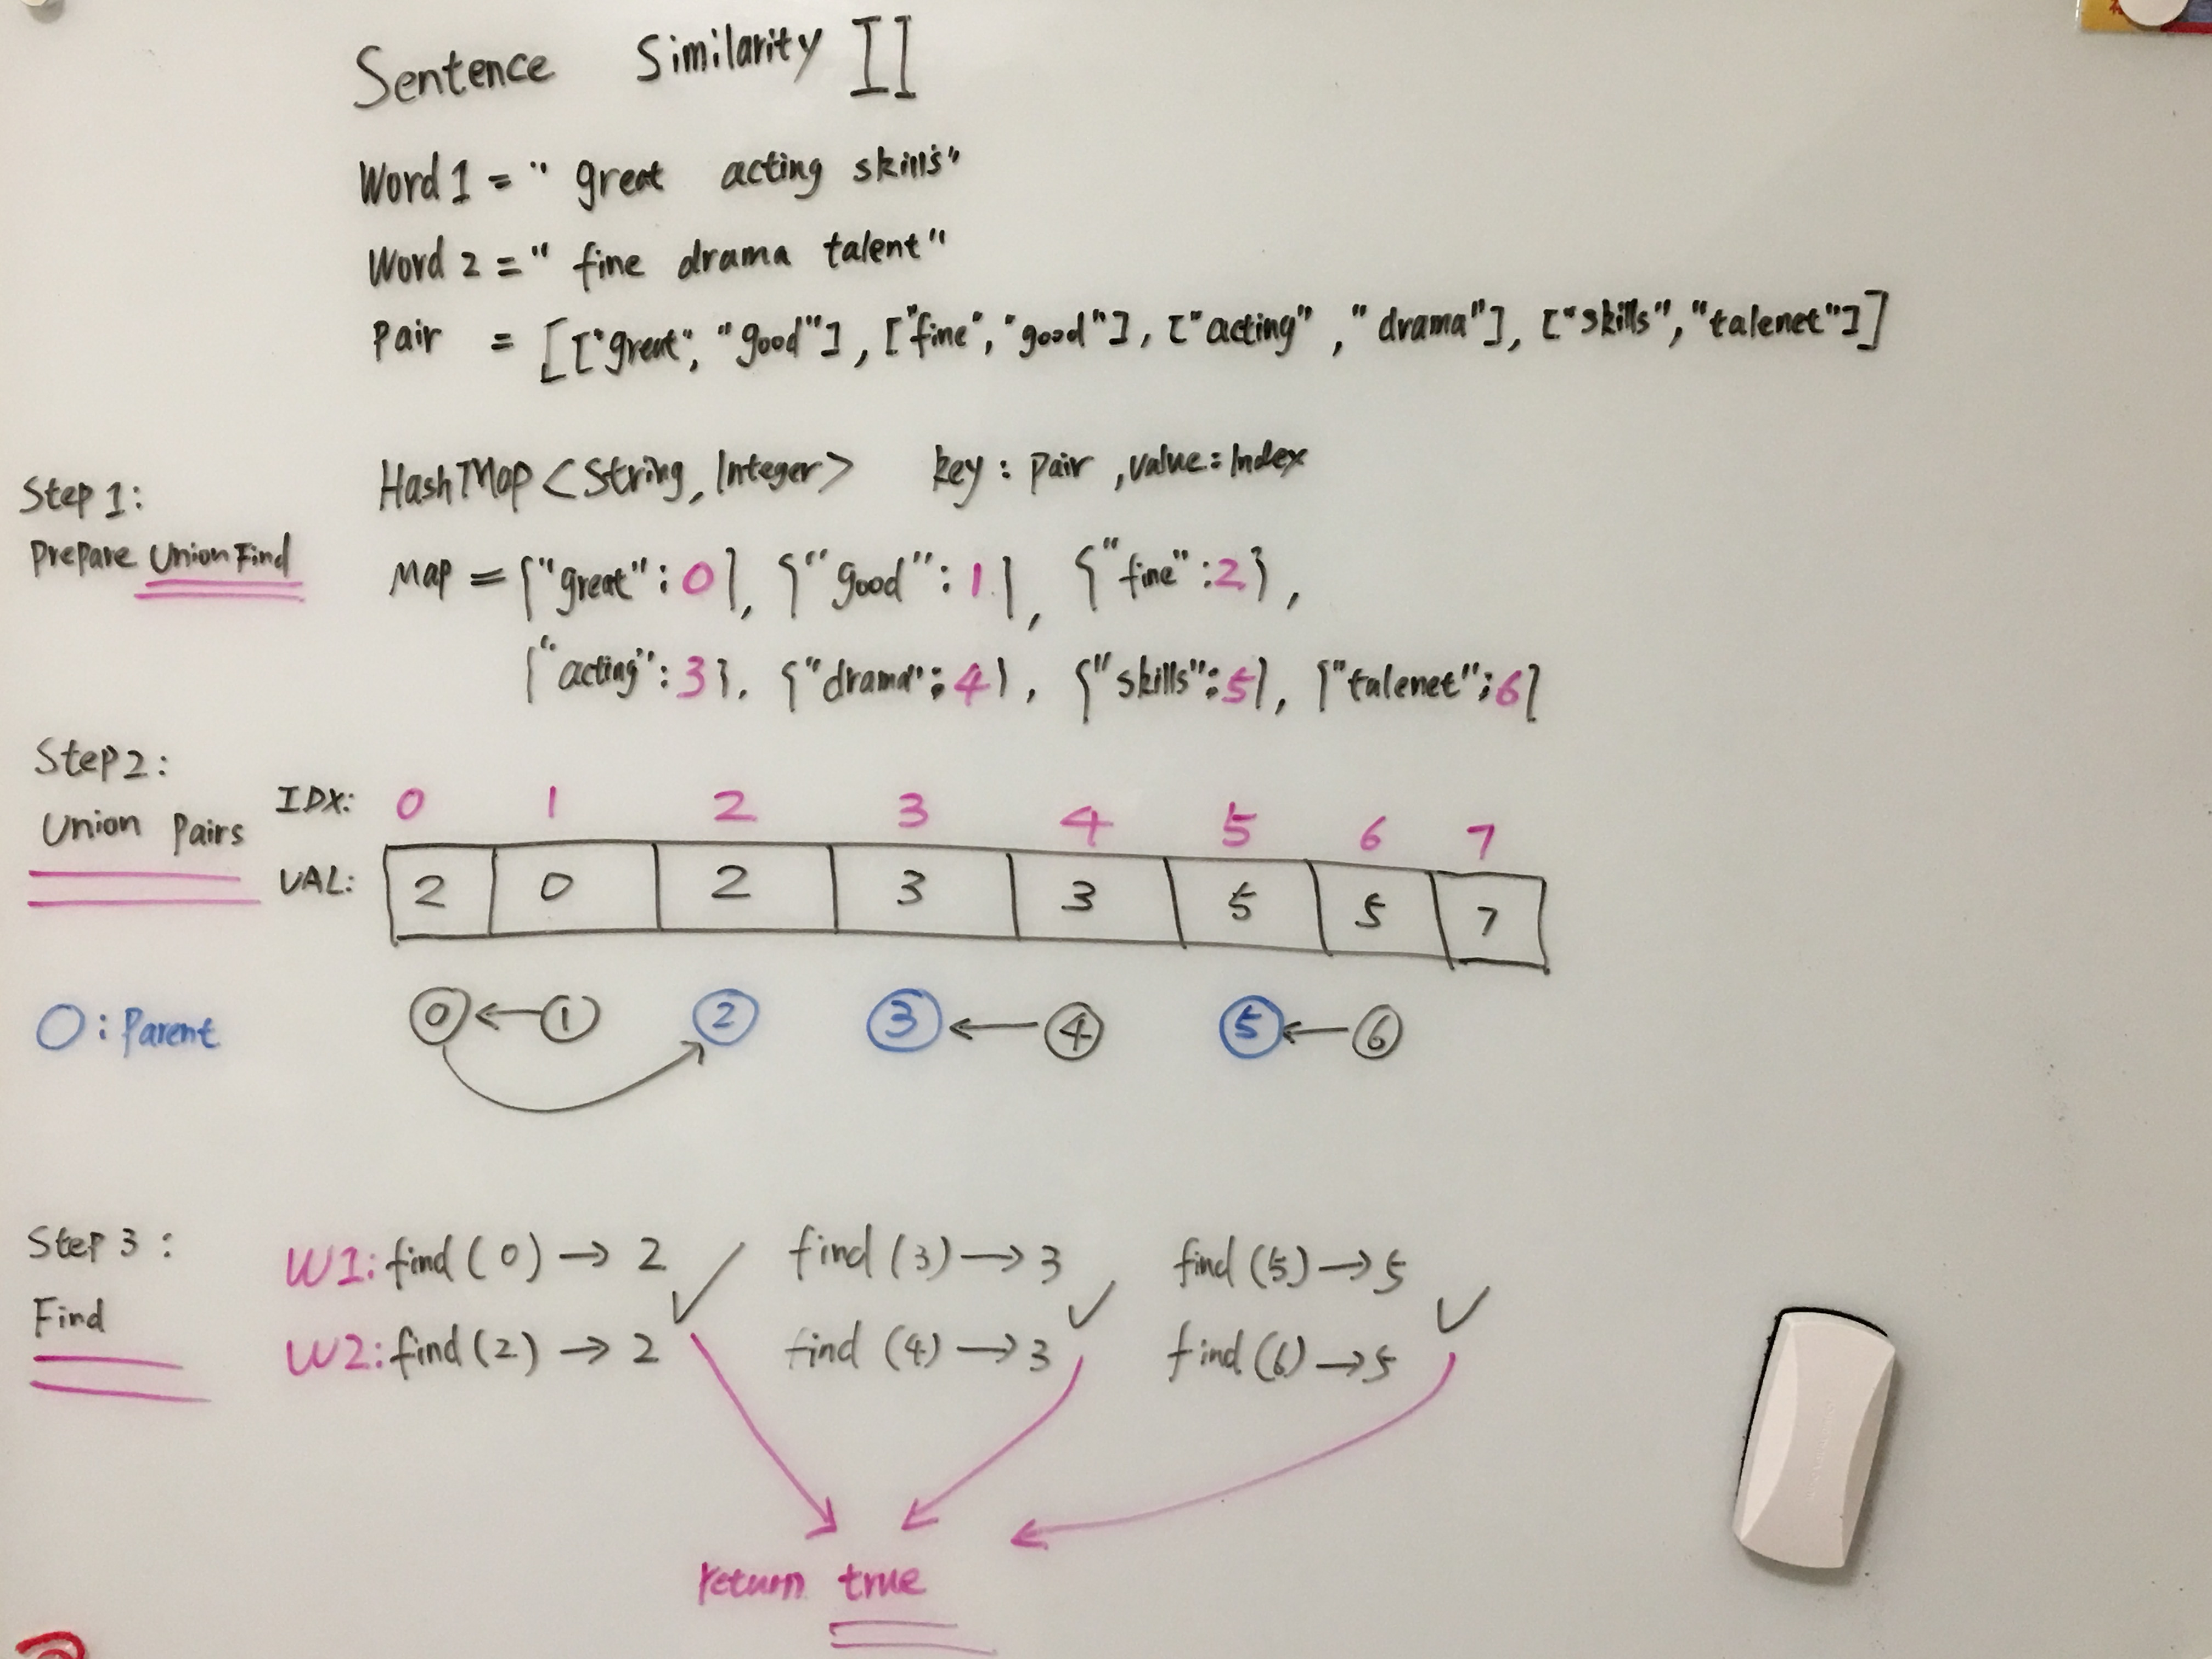 Sentence Similarity II
Word 1 = " great acting skills"
Word 2 = " fine drama talent"
Pair = [["great", "good"], ["fine", "good"], ["acting", "drama"], ["skills", "talenet"]]
Step 1:
HashMap <String, Integer> key: pair, value: Index
Prepare Union Find
Map = {"great": 0}, {"good": 1}, {"fine": 2},
{"acting": 3}, {"drama": 4}, {"skills": 5}, {"talenet": 6}
Step 2:
Union Pairs
IDX: 0 1 2 3 4 5 6 7
VAL: 2 0 2 3 3 5 5 7
O: Parent
0 ← 1 2 3 ← 4 5 ← 6
Step 3:
Find
W1: find (0) → 2 ✓ find (3) → 3 ✓ find (5) → 5 ✓
W2: find (2) → 2 find (4) → 3 find (6) → 5
return true